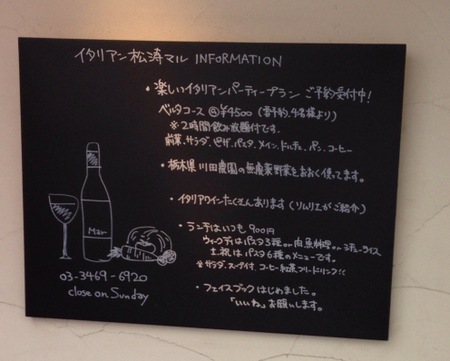 イタリアン松涛マル INFORMATION
・楽しいイタリアンパーティープラン ご予約受付中!
ベルタコース ¥4500 (要予約、4名様より)
※2時間飲み放題付です。
前菜、サラダ、ピザ、パスタ、メイン、ドルチェ、パン、コーヒー
・栃木県 川田農園の無農薬野菜をおおく使ってます。
・イタリアワインたくさんあります (ソムリエがご紹介)
・ランチはいつも 900円
ウィークデイはパスタ3種 or 肉魚料理 or シチューライス
土祝はパスタ6種のメニューです。
※サラダ、スープ付、コーヒー紅茶フリードリンク!!
・フェイスブックはじめました。
「いいね」お願いします。
Mar
03-3469-6920
close on Sunday